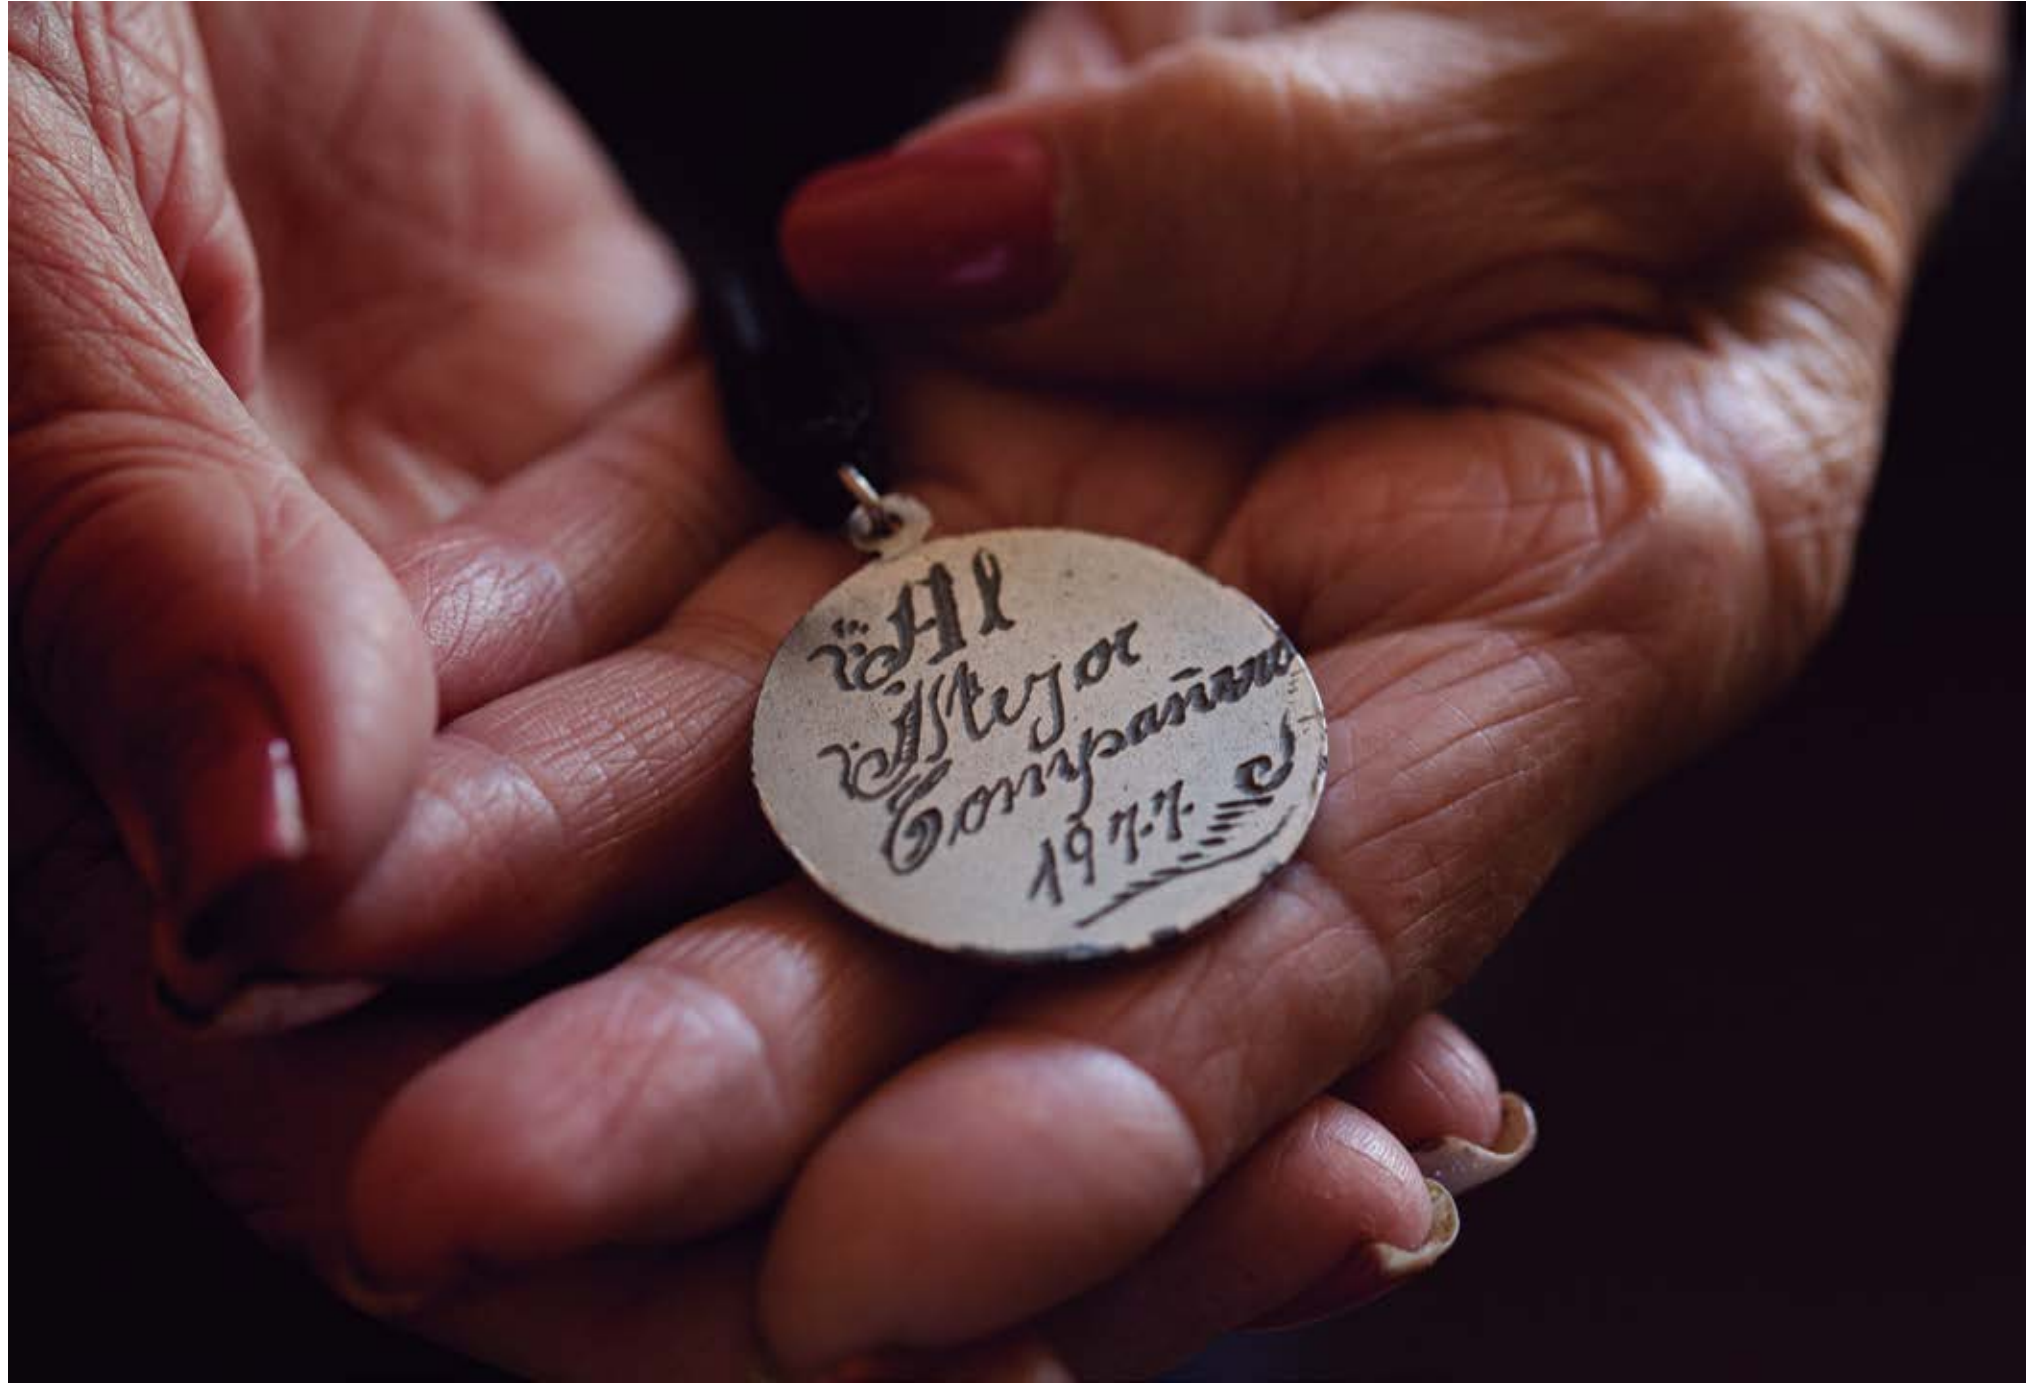 Al
Mejor
Compañero
1977